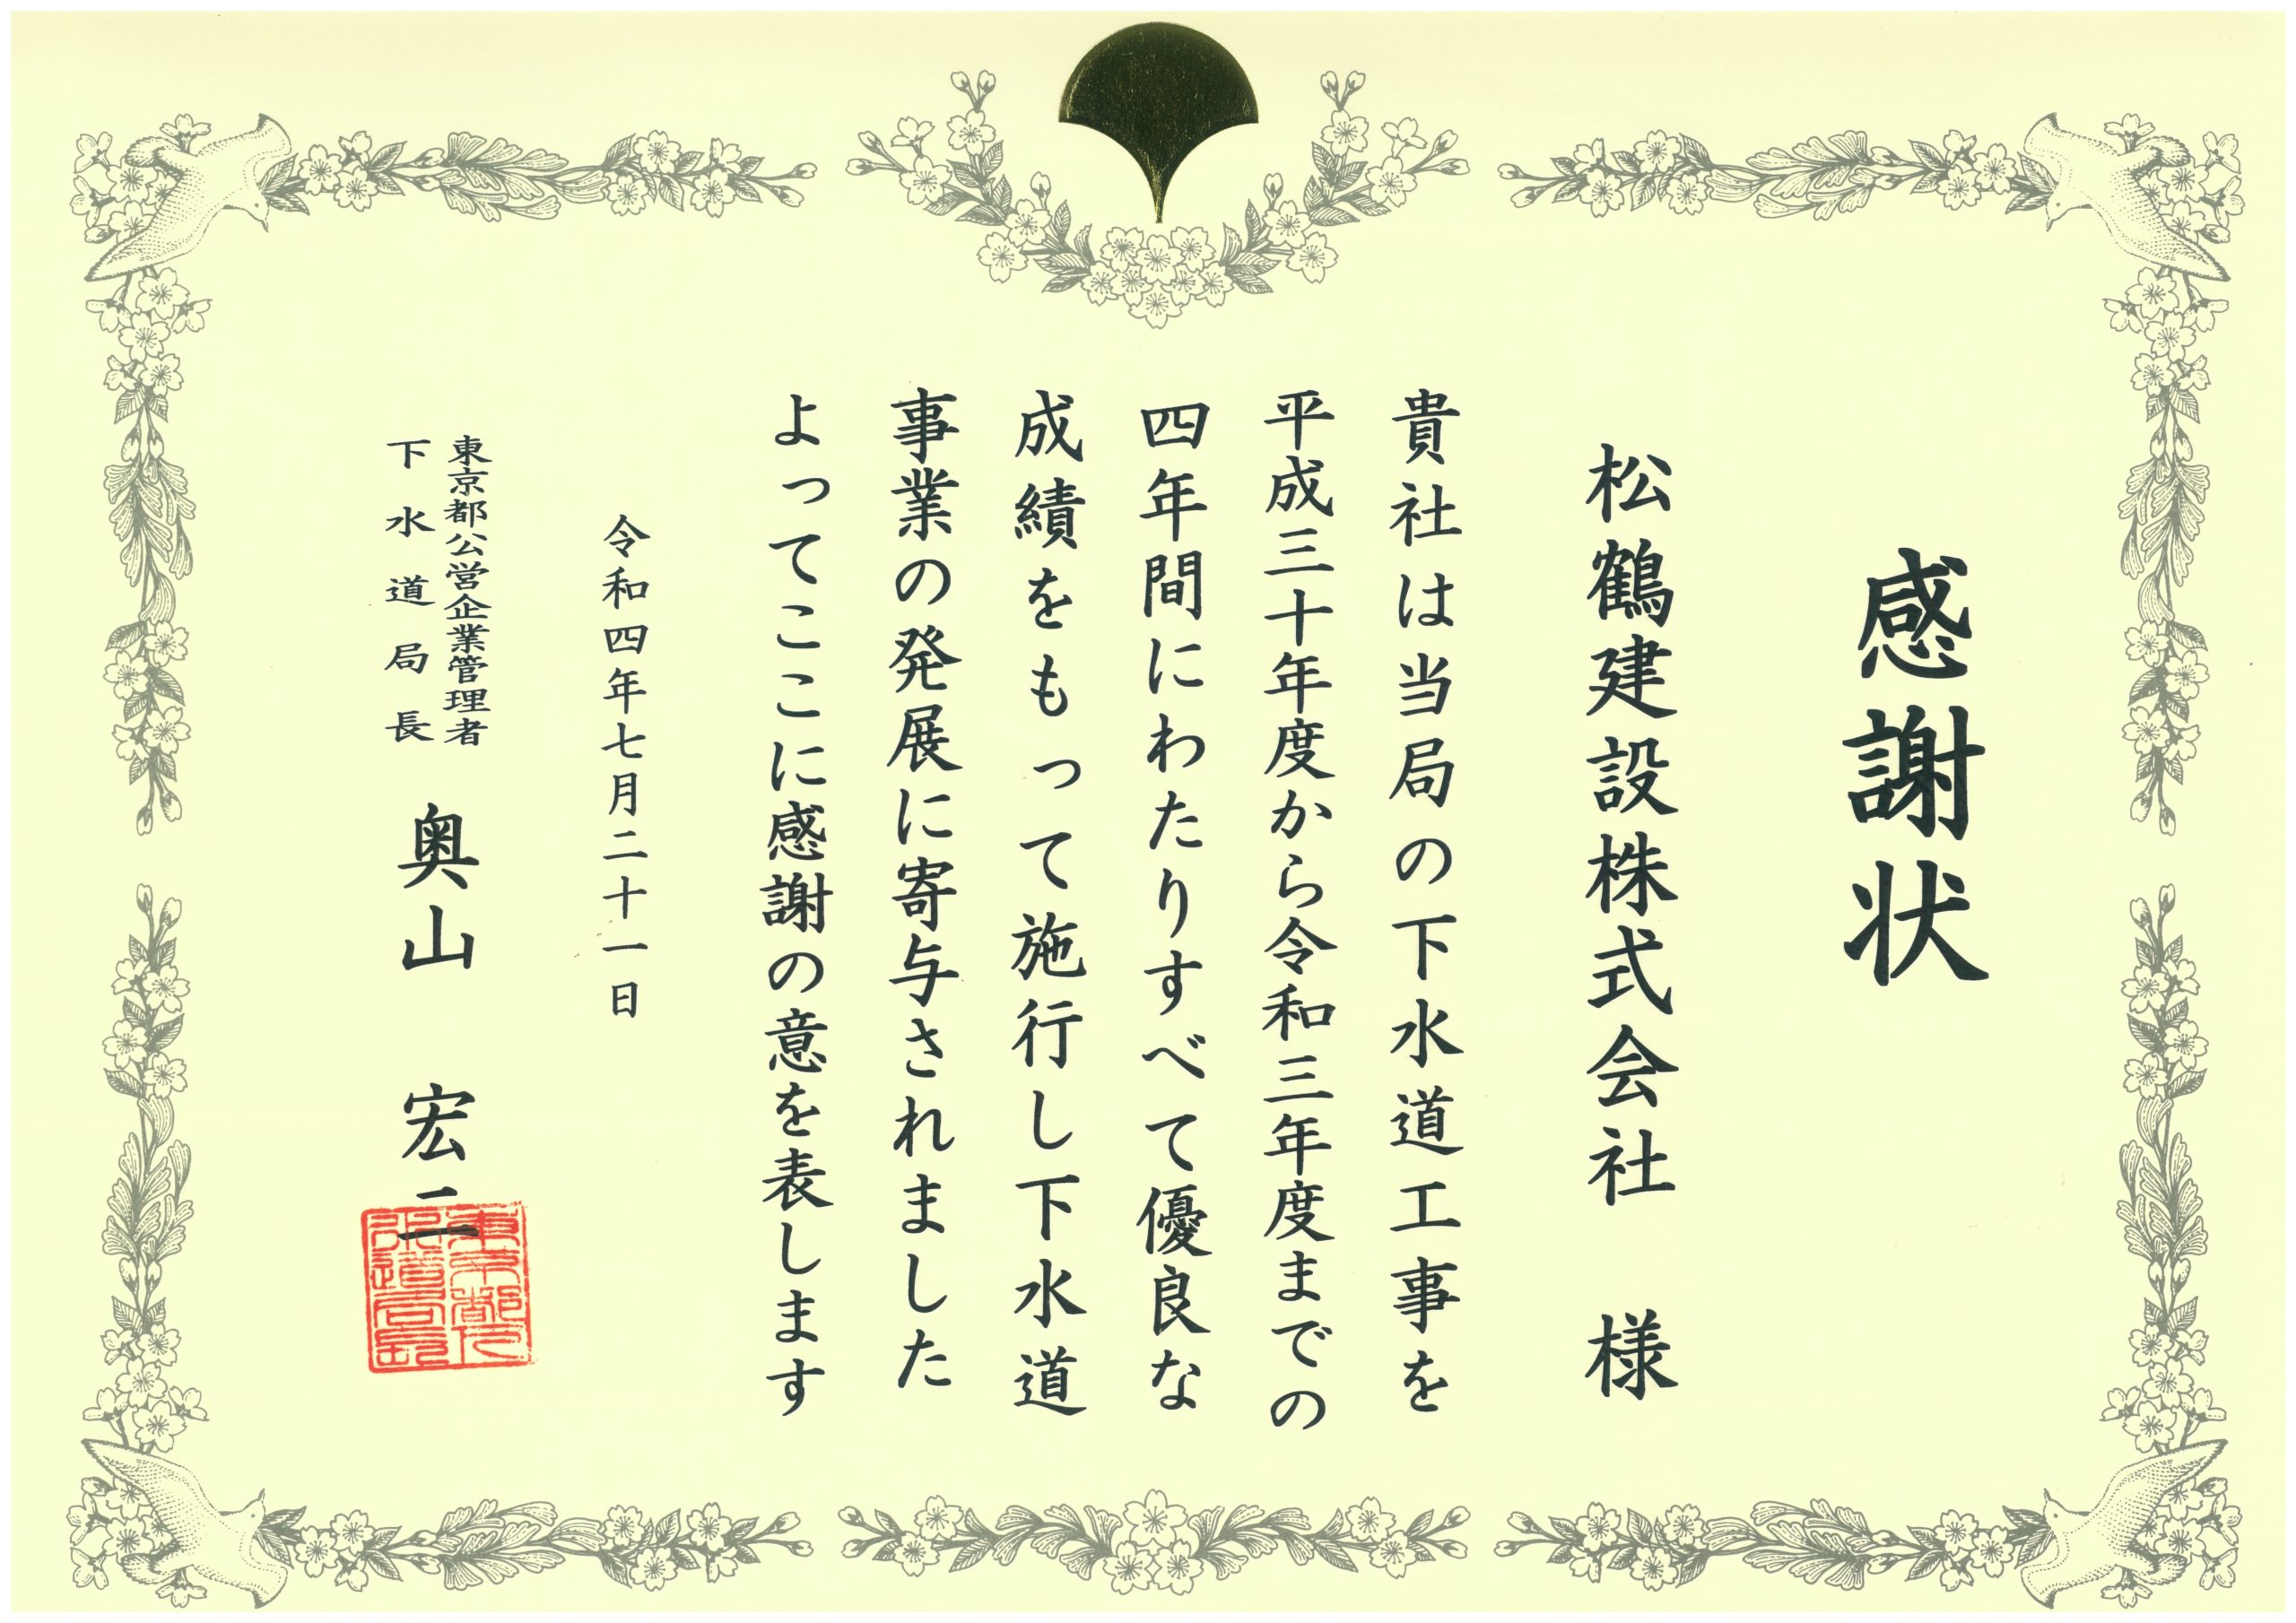 感謝状
松鶴建設株式会社 様
貴社は当局の下水道工事を
平成三十年度から令和三年度までの
四年間にわたりすべて優良な
成績をもって施行し下水道
事業の発展に寄与されました
よってここに感謝の意を表します
令和四年七月二十一日
東京都公営企業管理者
下水道局長
奥山 宏二
東京都下
水道局長